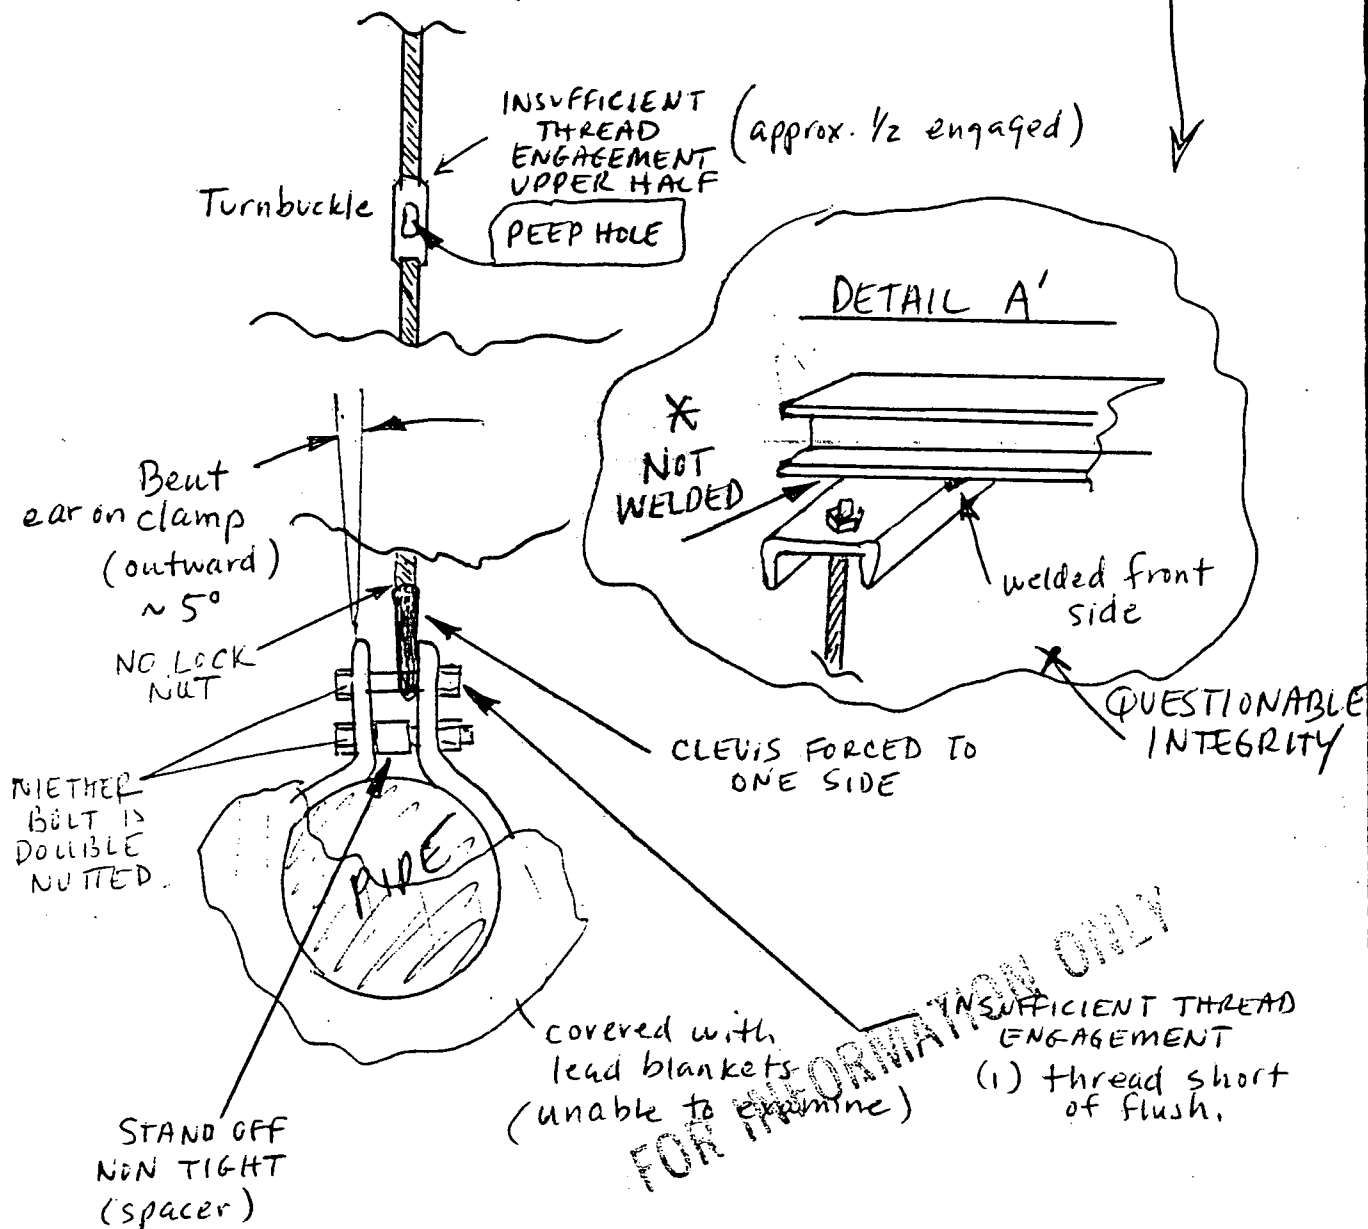 INSUFFICIENT
THREAD
ENGAGEMENT
UPPER HALF
(approx. 1/2 engaged)
Turnbuckle
PEEP HOLE
DETAIL A'
*
NOT
WELDED
welded front
side
QUESTIONABLE
INTEGRITY
Bent
ear on clamp
(outward)
~ 5°
NO LOCK
NUT
CLEVIS FORCED TO
ONE SIDE
NIETHER
BOLT IS
DOUBLE
NUTTED.
PIPE
covered with
lead blankets
(unable to examine)
INSUFFICIENT THREAD
ENGAGEMENT
(1) thread short
of flush.
STAND OFF
NON TIGHT
(spacer)
FOR INFORMATION ONLY